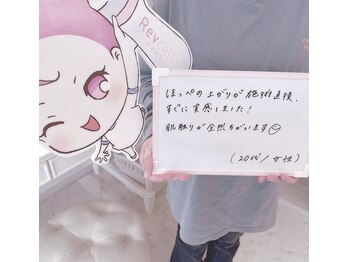 Revicell
ほっぺの上がりが施術直後、
すぐに実感しました!
肌触りが全然ちがいます☺
(20代/女性)